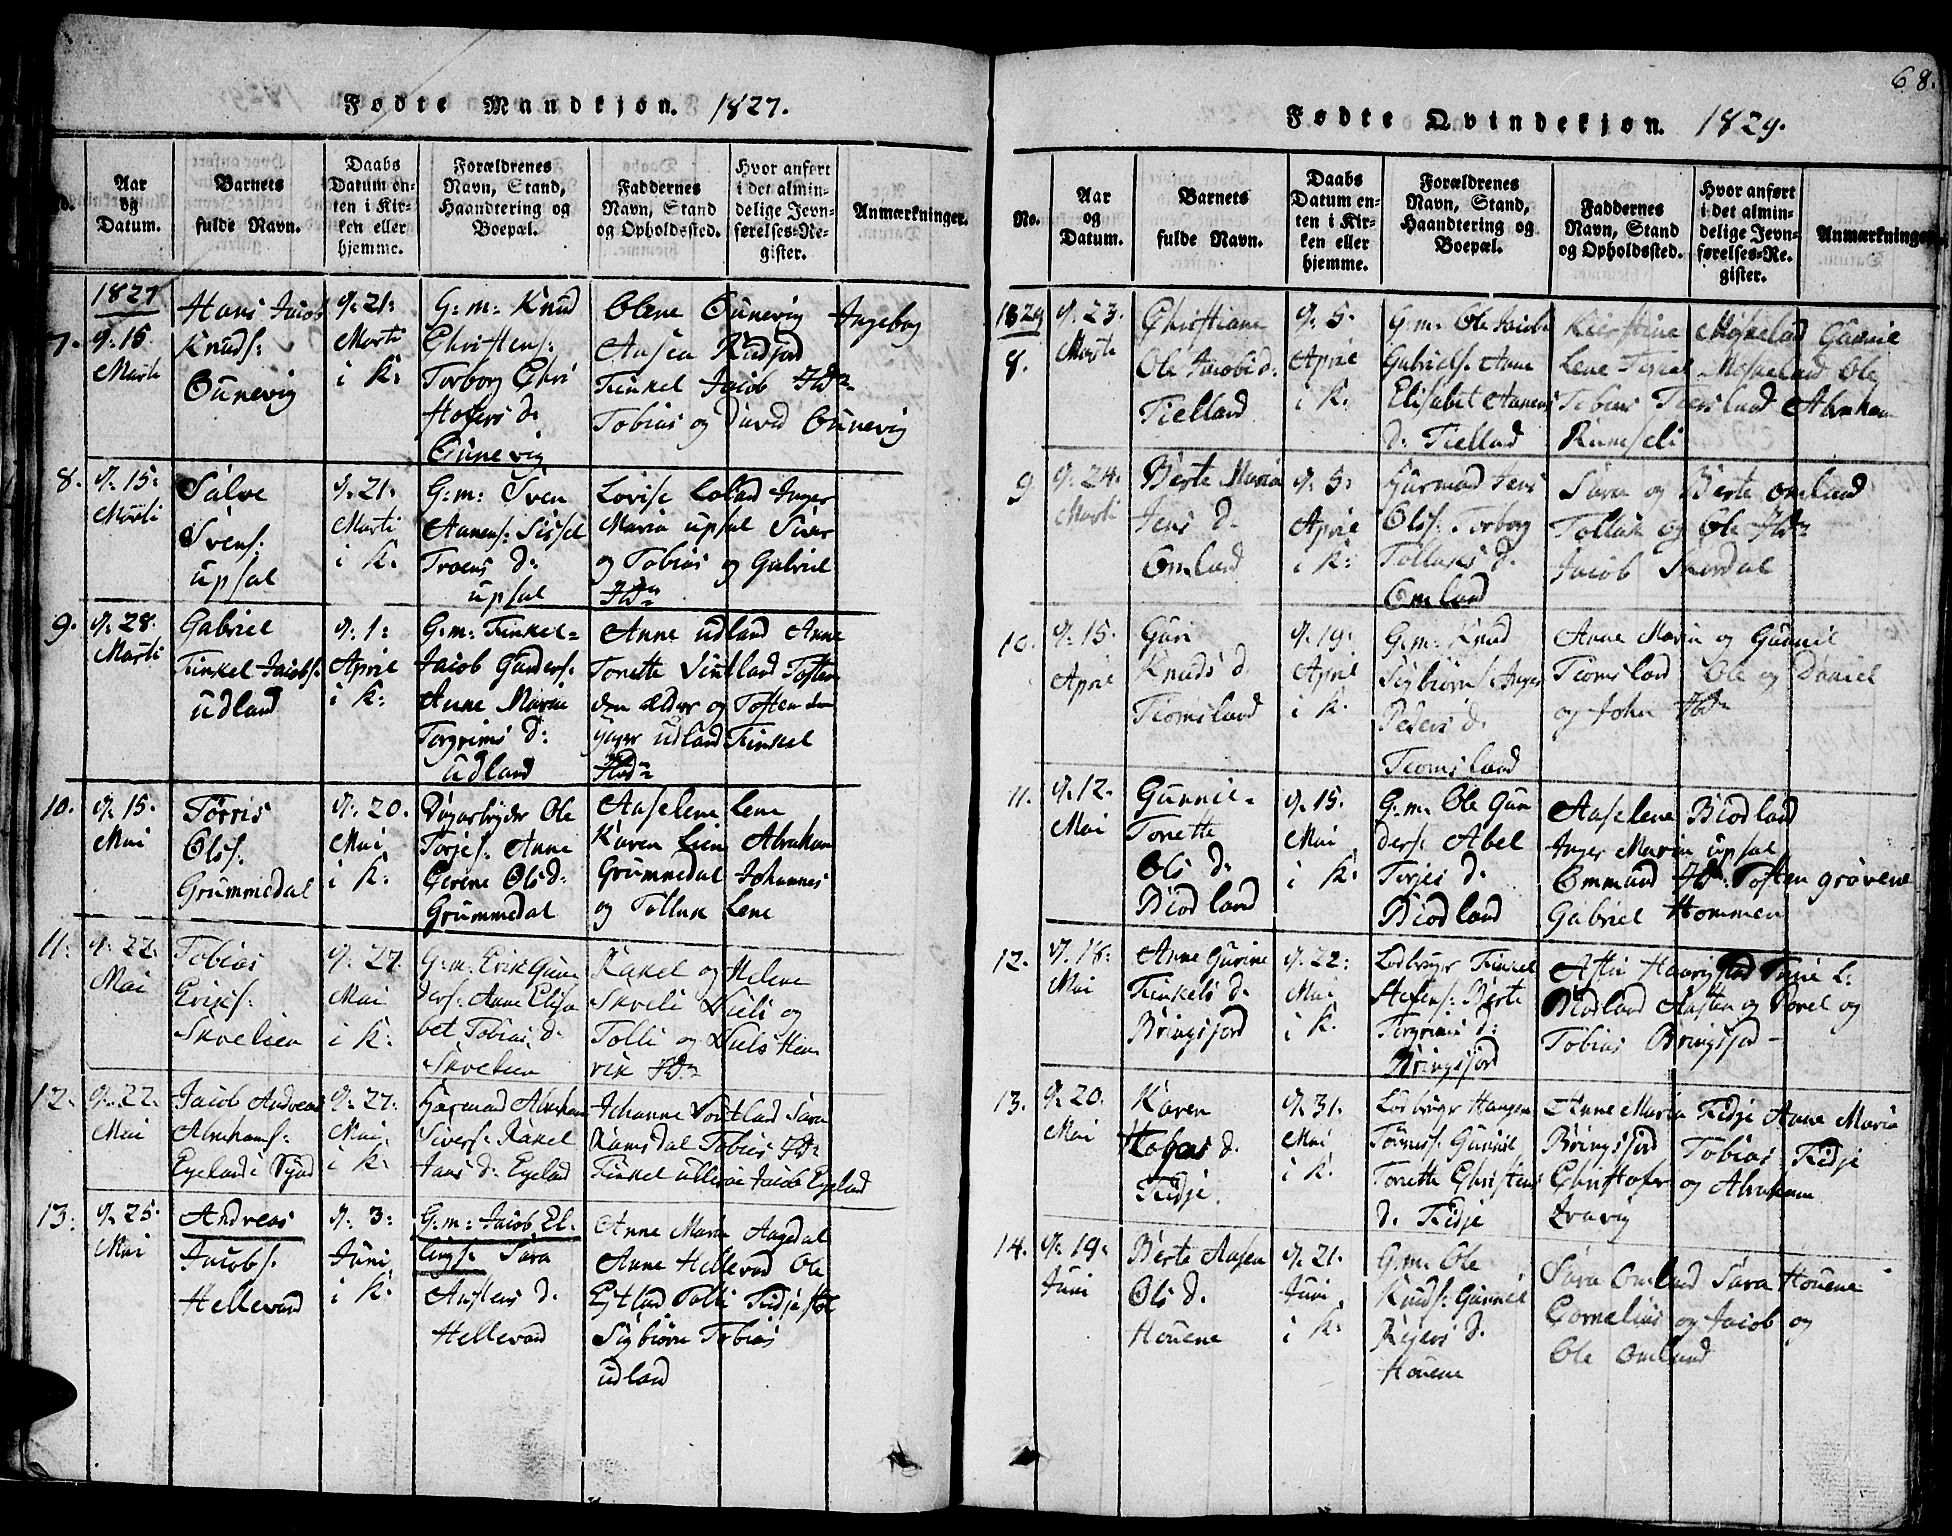 68.
Fødte Mandkjøn. 1827.
Aar og Datum.
Barnets fulde Navn.
Daabs Datum enten i Kirken eller hjemme.
Forældrenes Navn, Stand, Haandtering og Boepæl.
Faddernes Navn, Stand og Opholdssted.
Hvor anført i det almindelige Jevnførelses-Register.
Anmærkninger.
1827
7. q. 15. Marti
Hans Jacob Knuds: Ounevig
q. 21: Marti i K:
G: m: Knud Christens: Torborg Christofers d. Ounevig
Olene Ounevig Ingebog
Aasen Rudjord
Tinkel Jacob HD
Tobias og David Ounevig
8. q. 15: Marti
Salve Svens: upsal
q. 21. Marti i K:
G: m: Sven Aanens: Sissel Troens d: upsal
Lovise Loland Inger
Maria upsal Siver
og Tobias og Gabriel
HD
9. q. 28. Marti
Gabriel Tinkel Jacobs: udland
q. 1: April i K:
G: m: Tinkel= Jacob Gunders: Anne Maria Torgrims d: udland
Anne udland Anne
Tonette Vintland Tosten
den ælder og Tosten den
ynger udland Tinkel
HD
10. q. 15. Mai
Tørris Ols: Grummedal
q. 20. Mai i K:
Ole Torjes: Anne Gerine Ols d. Grummedal
Aaselene Lene
Karen Lien Abraham
Grummedal Johannes
og Tolluk Lene
11. q. 22. Mai
Tobias Eriks: Skvelien
q. 27. Mai i K:
G: m: Erik Gunders: Anne Elisabet Tobias d. Skvelien
Rakel og Helene
Skveli Nieli og
Tolli og Niels Henrik HD
12. q. 22. Mai
Jacob Andreas Abrahams: Egeland
q. 27. Mai. i K:
Husmand Abraham Sivers: Rakel Jans d. Egelad
Johanne Vontlad Sara
Ramsdal Tobias HD
Tinkel Jacob Egelad
13. q. 25. Mai
Andreas Jacobs. Hellevad
q. 3: Juni i K:
G: m: Jacob Ellings: Sara Austens d. Hellevad
Anne Maria Aagedal
Anne Hellevad Ole
Egtlad Tolli Tidje
Sigbiørn Tobias
udland
Fødte Qvindekjøn. 1829.
No.
Aar og Datum.
Barnets fulde Navn.
Daabs Datum enten i Kirken eller hjemme.
Forældrenes Navn, Stand, Haandtering og Boepæl.
Faddernes Navn, Stand og Opholdssted.
Hvor anført i det almindelige Jevnførelses-Register.
Anmærkninger
1829
8. q. 23. Marti
Christiane Ole Jacobs d. Tielland
q. 5. April i K.
G: m: Ole Jacob Gabriels. Anne Elisabet Aanens d. Tiellad
Kierstine Møskelad Gunnil
Lene Møskeland Ole
Tobias Abraham
Rumseli
9 q. 24. Marti
Berte Maria Jens d. Omland
q. 5: April i K:
Husmand Jens Ols. Torborg Tolluks d. Omland
Sara og Berte omland
Tolluk og Ole HD
Jacob
10. q. 15. April
Guri Knuds d. Tiomsland
q. 19. April i K.
G: m: Knud Sigbiørns Inger Peders d. Tiomsland
Anne Maria og Gunnil
Tiomsland Ole og Daniel
og John HD
11. q. 12. Mai
Gunnil= Tonette Ols d. Biodland
q. 15. Mai i K:
G: m: Ole Gunders: Abel Terjes d. Biodland
Aaselene Biodland
Inger Maria upsal
Ommund HD: Tosten grøvene
Gabriel Hommen
12. q. 16: Mai
Anne Gurine Tinkels d. Bringsjord
q. 22: Mai i K.
Tinkel Stefens: Berte Torgrims d: Bringsjord
Biodland Austen og Povel og
Tobias Bringsjord
13. q. 20. Mai
Karen d. Tidje.
q. 31. Mai i K.
Gunnil Tonette Christens d. Tidje
Anne Maria Tidje Anne Maria
Bringsjord Tobias Tidje
Christofer og Abraham
14. q. 19: Juni
Berte Aasen Ols d. Houene
q. 21. Juni i K:
G: m. Ole Knuds: Gunnil Reiers d. Houene
Sara Omlund Sara Houene
Cornelius og Jacob og
Ole Omlund